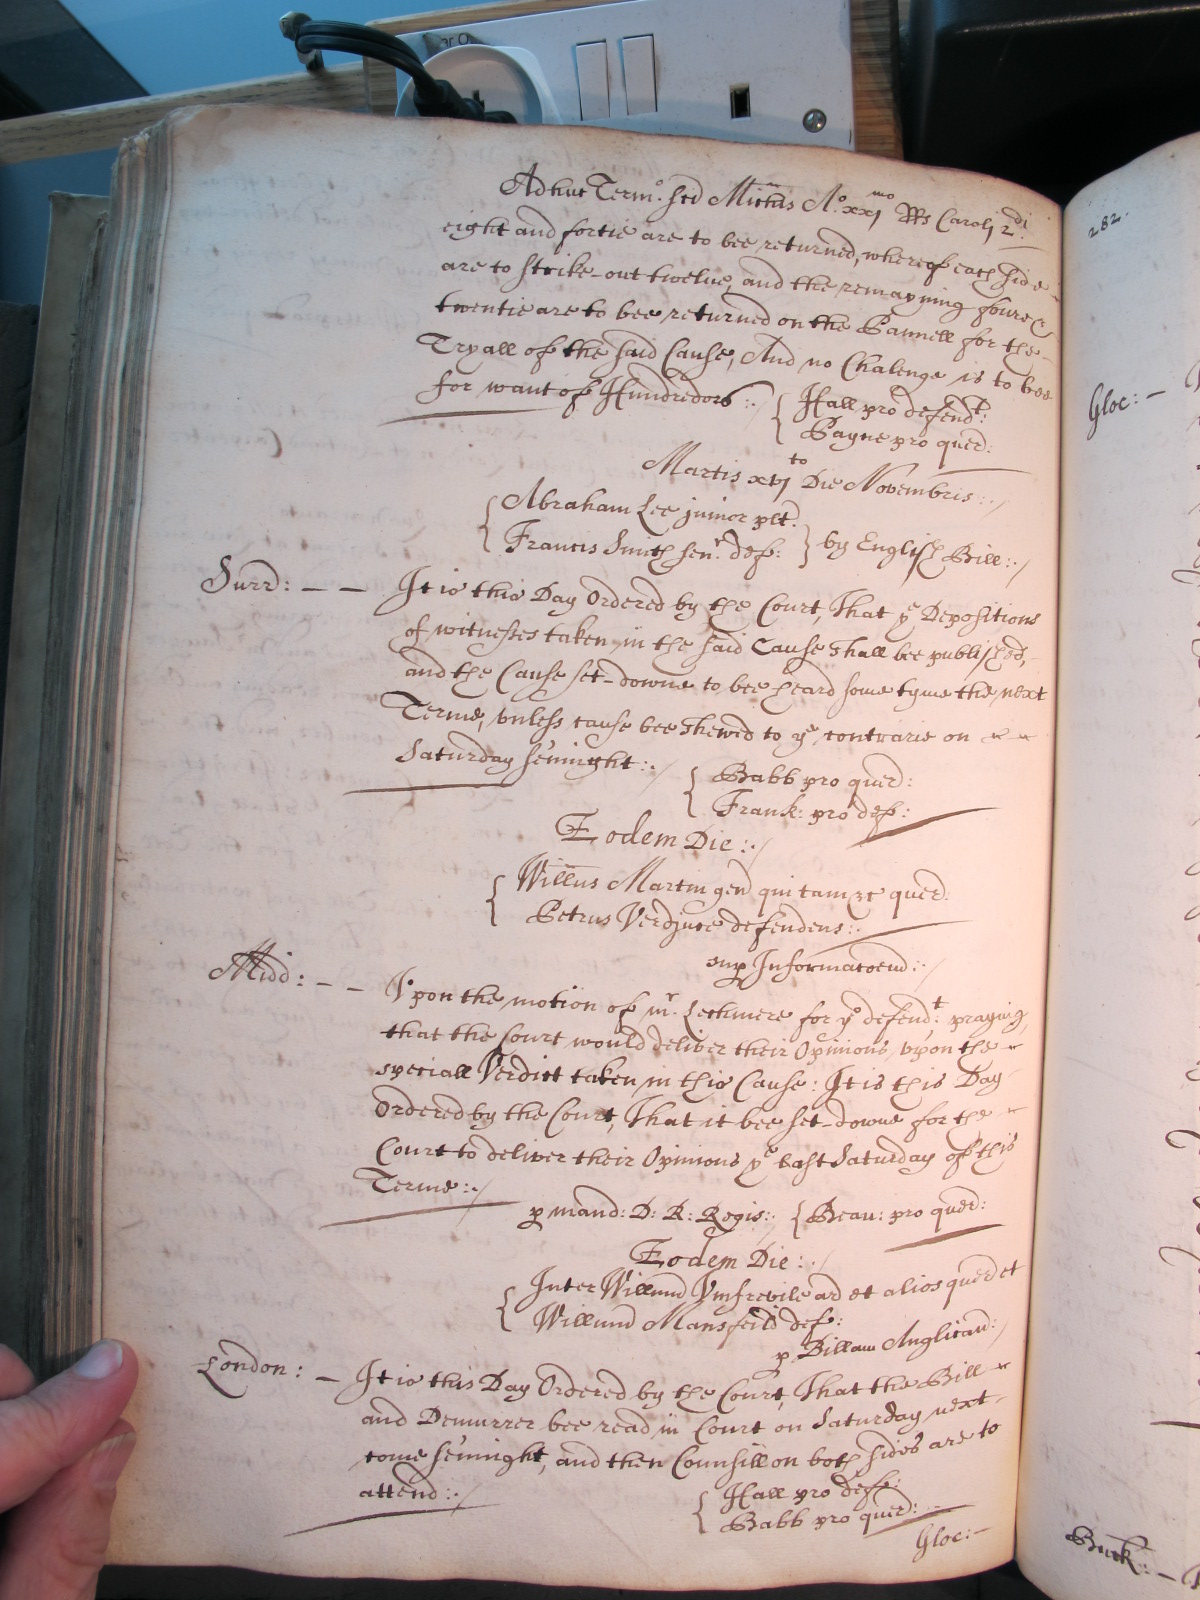 Adhuc Term.o scd Michis A.o xxj mo RRs Caroli 2.di
eight and fortie are to bee returned, whereof each side
are to strike-out twelve, and the remayning foure &
twentie are to bee returned on the Pannell for the
Tryall of the said Cause, And no Chalenge is to bee
for want of Hundredors:./
Hall pro defend.t:
Payne pro quer:
Martis xvj to Die Novembris:./
Abraham Lee junior plt.
Francis Smith sen.r def: } by English Bill:./
Surr: — — It is this Day Ordered by the Court, That ye Depositions
of witnesses taken in the said Cause shall bee published,
and the Cause set-downe to bee heard some tyme the next
Terme, vnless cause bee shewed to ye contrarie on
Saturday sennight:./
Babb pro quer:
Frank: pro def:
Eodem Die:./
Willus Martin gen qui tam &c quer:
Petrus Verdjure defendens:.
sup Informacoend:./
Midd: — — Vpon the motion of mr. Lechmere for ye defend.t praying,
that the Court would deliver their Opinions, vpon the
speciall Verdict taken in this Cause: It is this Day
Ordered by the Court, That it bee set-downe for the
Court to deliver their Opinions ye last Saturday of this
Terme:./
p mand: D: R: Regis:. { Beau: pro quer:
Eodem Die:./
Inter Willum Vmfrevile ar et alios quer et
Willum Mansfeild def:
p Billam Anglican:/
London: — It is this Day Ordered by the Court, That the Bill
and Demurrer bee read in Court on Saturday next
come sennight, and then Counsill on both sides are to
attend:./
Hall pro def:
Babb pro quer:
Gloc:—
282.
Gloc: —
Buck: —